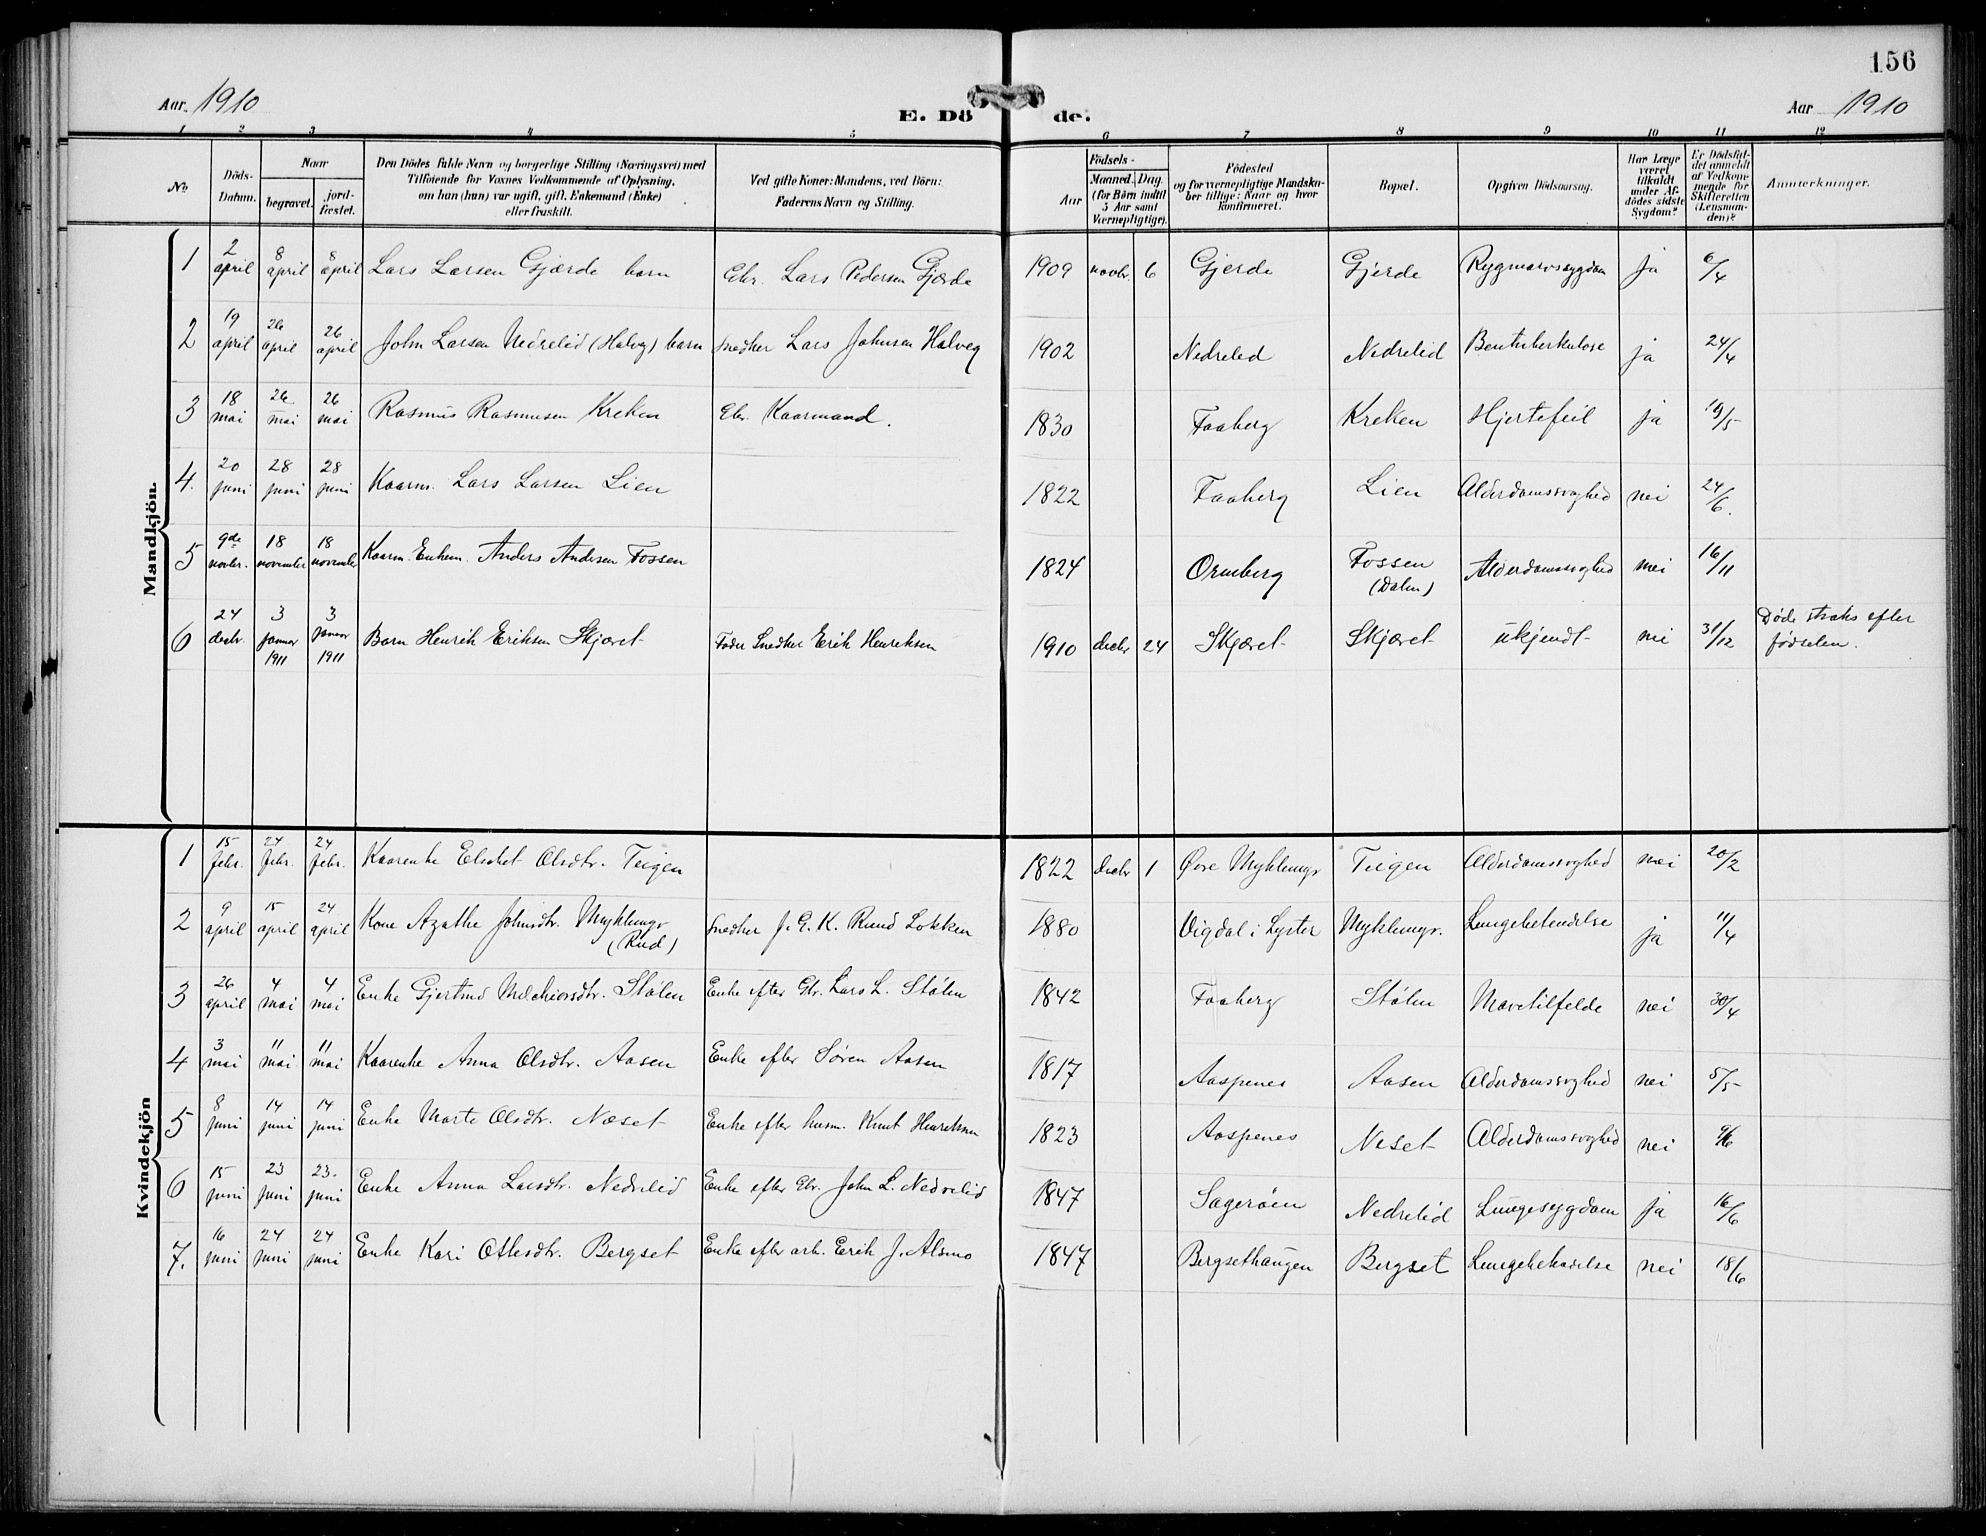 156
Aar 1910
E. Dö de.
Aar 1910
1 2 3 4 5 6 7 8 9 10 11 12
No
Döds-Datum.
Naar
begravet.
jord-fæstet.
Den Dödes fulde Navn og borgerlige Stilling (Næringsvei) med
Tilföiende for Voxnes Vedkommende af Oplysning,
om han (hun) var ugift, gift, Enkemand (Enke)
eller fraskilt.
Ved gifte Koner: Mandens, ved Börn:
Faderens Navn og Stilling.
Födsels-
Aar
Maaned. Dag
(for Börn indtil
5 Aar samt
Værnepligtige).
Födested
og for værnepligtige Mandska-
ber tillige: Naar og hvor
konfirmeret.
Bopæl.
Opgiven Dödsaarsag.
Har Læge
været
tilkaldt
under Af-
dödes sidste
Sygdom?
Er Dödsfal-
det anmeldt
af Vedkom-
mende for
Skifteretten
(Lensman-
den)?
Anmærkninger.
Mandkjön.
1 2 april 8 april 8 april Lars Larsen Gjærde barn Gbr. Lars Pedersen Gjærde 1909 novbr. 6 Gjerde Gjerde Rygmarvssygdom ja 6/4
2 19 april 26 april 26 april John Larsen Nedrelid (Halveg) barn Snedker Lars Johnsen Halveg 1902 Nedrelid Nedrelid Bentuberkulose ja 24/4
3 18 mai 26 mai 26 mai Rasmus Rasmusen Kreken Gbr. Kaarmand. 1830 Faaberg Kreken Hjertefeil ja 19/5
4. 20 juni 28 juni 28 juni Kaarm. Lars Larsen Lien 1822 Faaberg Lien Alderdomssvaghed nei 24/6.
5 9de novbr. 18 november 18 november Kaarm. Enkem. Anders Andersen Fossen 1824 Ormberg Fossen (Dalen) Alderdomssvaghed nei 16/11
6 24 decbr. 3 januar 1911 3 januar 1911 Barn Henrik Eriksen Skjæret Fader Snedker Erik Henriksen 1910 decbr 24 Skjæret Skjæret ukjendt nei 31/12 Døde straks efter fødselen.
Kvindekjön
1 15 febr. 24 febr. 24 febr. Kaarenke Elisbet Olsdtr. Teigen 1822 decbr 1 Øvre Myklemyr Teigen Alderdomssvaghed nei 20/2
2 9 april 15 april 24 april Kone Agathe Johnsdtr. Myklemyr (Rud) Snedker J. G. K. Ruud Løkken 1880 Vigdal i Lyster Myklemyr. Lungebetendelse ja 11/4
3 26 april 4 mai 4 mai Enke Gjertrud Melchiorsdtr. Stølen Enke efter Gbr. Lars L. Stølen 1842 Faaberg Stølen Mavetilfelde nei 30/4
4 3 mai 11 mai 11 mai Kaarenke Anna Olsdtr. Aasen Enke efter Søren Aasen 1817 Aaspenes Aasen Alderdomssvaghed nei 5/5
5 8 juni 14 juni 14 juni Enke Marte Olsdtr. Næset Enke efter husm. Knut Henriksen 1823 Aaspenes Neset Alderdomssvaghed nei 9/6
6 15 juni 23 juni 23. juni Enke Anna Larsdtr. Nedrelid Enke efter Gbr. John L. Nedrelid 1847 Sagerøen Nedrelid Lungesygdom ja 16/6
7. 16 juni 24 juni 24 juni Enke Kari Ottesdtr. Bergset Enke efter arb. Erik J. Alsmo 1847 Bergsethaugen Bergset Lungebetendelse nei 18/6